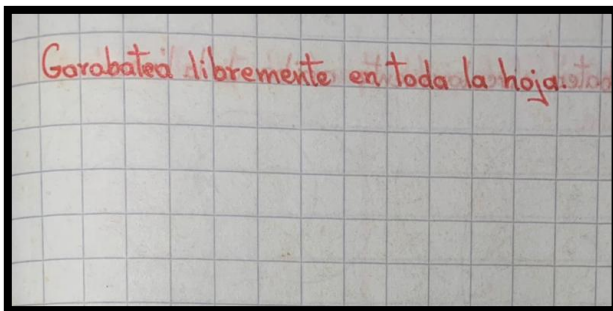 Garabatea libremente en toda la hoja.